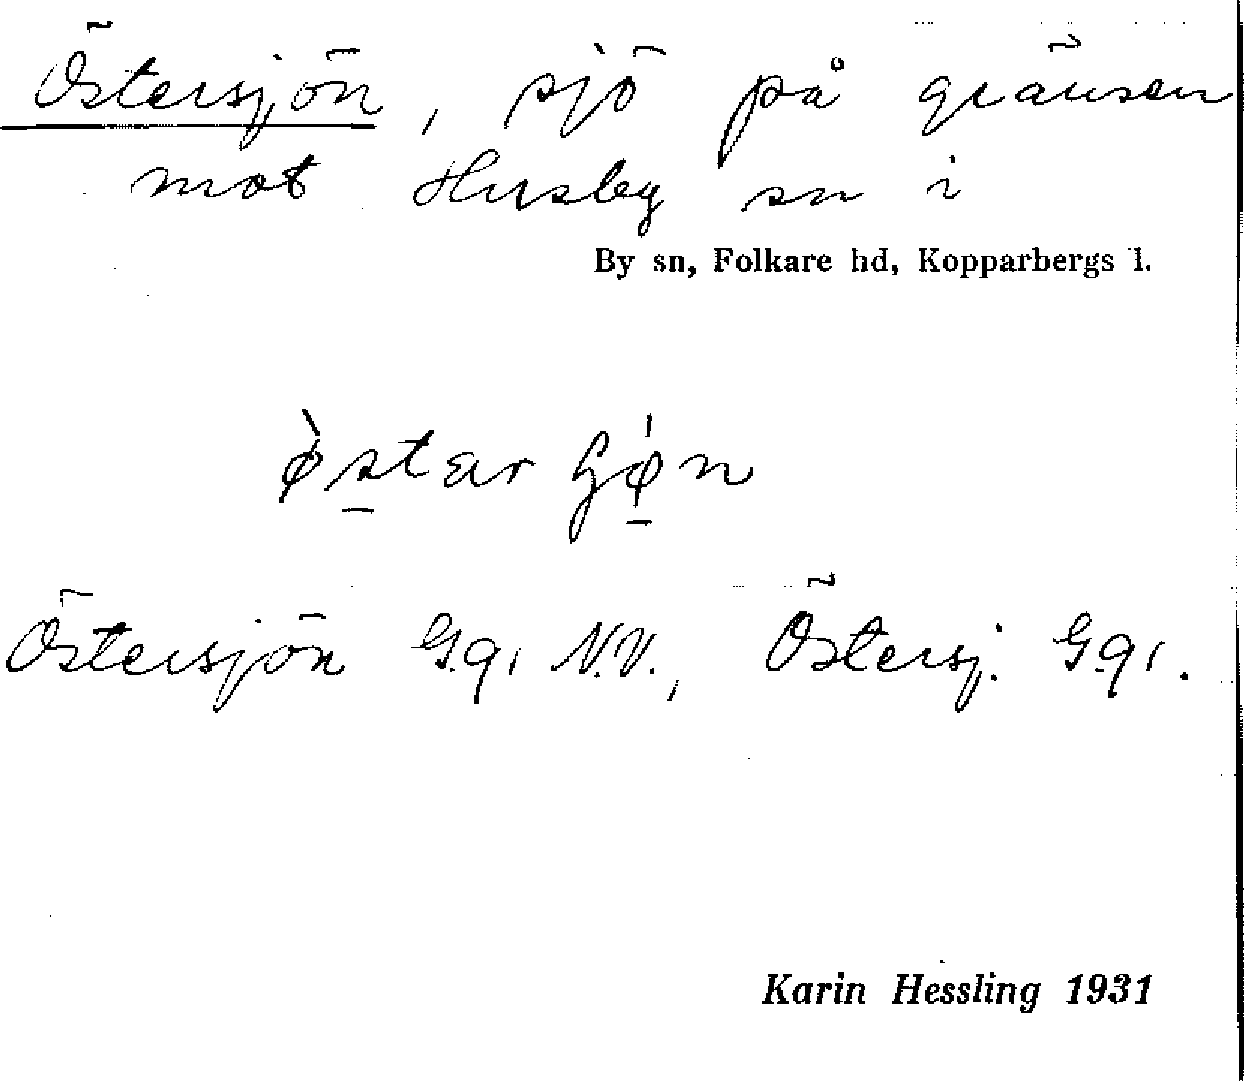 Östersjön, sjö på gränsen
mot Husby sn i
By sn, Folkare hd, Kopparbergs l.
Östersjön G.q. N.V., Östersj. G.q.
Karin Hessling 1931